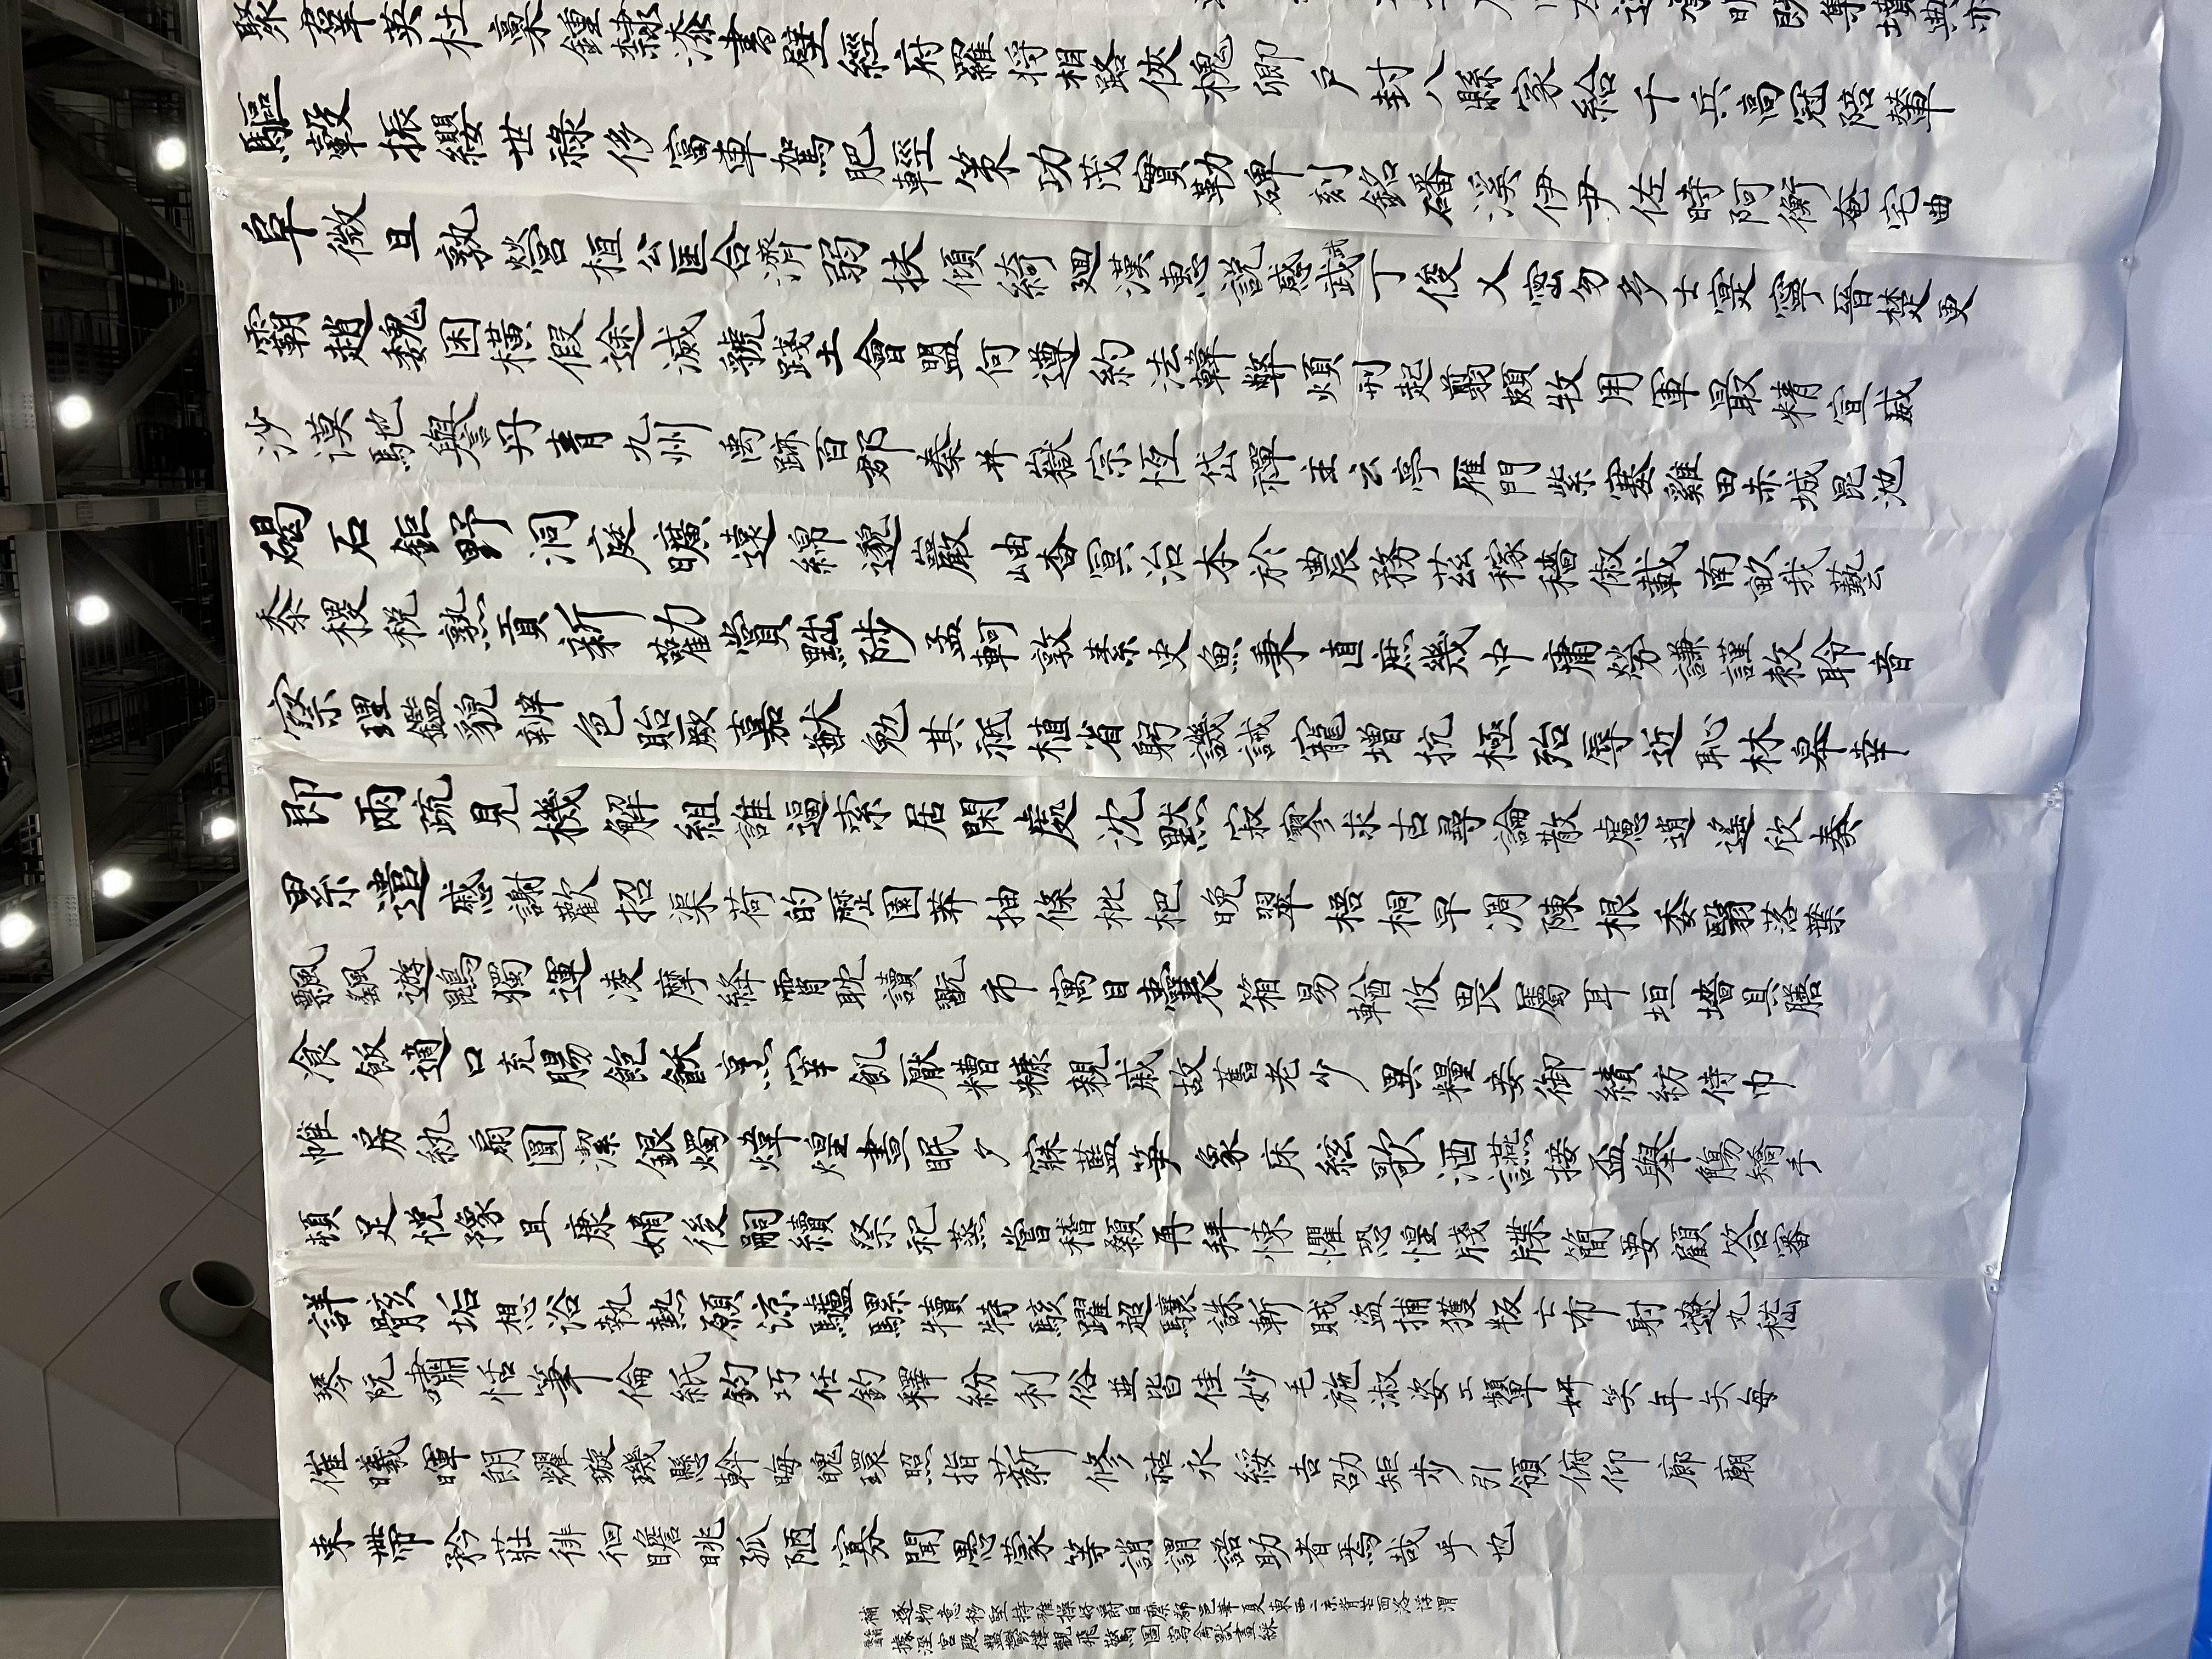 達承明既集墳典亦
聚群英杜稾鍾隸漆書壁經府羅將相路俠槐卿戶封八縣家給千兵高冠陪輦
驅轂振纓世祿侈富車駕肥輕策功茂實勒碑刻銘磻溪伊尹佐時阿衡奄宅曲
阜微旦孰營桓公匡合濟弱扶傾綺迴漢惠說感武丁俊乂密勿多士寔寧晉楚更
霸趙魏困橫假途滅虢踐土會盟何遵約法韓弊煩刑起翦頗牧用軍最精宣威
沙漠馳譽丹青九州禹跡百郡秦并嶽宗恆岱禪主云亭雁門紫塞雞田赤城昆池
碣石鉅野洞庭曠遠綿邈巖岫杳冥治本於農務茲稼穡俶載南畝我藝
黍稷稅熟貢新勸賞黜陟孟軻敦素史魚秉直庶幾中庸勞謙謹敕聆音
察理鑑貌辨色貽厥嘉猷勉其祗植省躬譏誡寵增抗極殆辱近恥林皋幸
即兩疏見機解組誰逼索居閒處沈默寂寥求古尋論散慮逍遙欣奏
累遣慼謝歡招渠荷的歷園莽抽條枇杷晚翠梧桐早凋陳根委翳落葉
飄颻遊鵾獨運凌摩絳霄耽讀翫市寓目囊箱易輶攸畏屬耳垣墻具膳
飡飯適口充腸飽飫烹宰飢厭糟糠親戚故舊老少異糧妾御績紡侍巾
帷房紈扇圓潔銀燭煒煌晝眠夕寐藍筍象床絃歌酒讌接盃舉觴矯手
頓足悅豫且康嫡後嗣續祭祀蒸嘗稽顙再拜悚懼恐惶牋牒簡要顧答審
詳骸垢想浴執熱願涼驢騾犢特駭躍超驤誅斬賊盜捕獲叛亡布射遼丸嵇
琴阮嘯恬筆倫紙鈞巧任釣釋紛利俗並皆佳妙毛施淑姿工顰妍笑年矢每
催曦暉朗耀璇璣懸斡晦魄環照指薪修祜永綏吉劭矩步引領俯仰廊廟
束帶矜莊徘徊瞻眺孤陋寡聞愚蒙等誚謂語助者焉哉乎也
補 逐物意移堅持雅操好爵自縻都邑華夏東西二京背芒面洛浮渭
據涇宮殿盤鬱樓觀飛驚圖寫禽獸畫綵